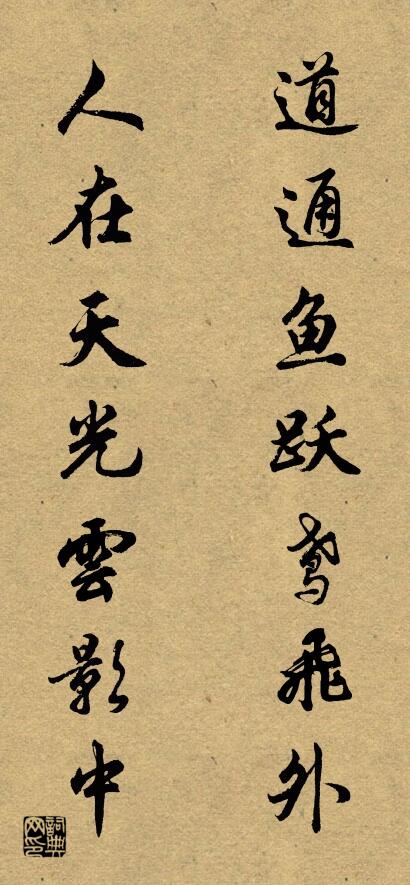 道通鱼跃鸢飞外
人在天光雲影中
詞典网印